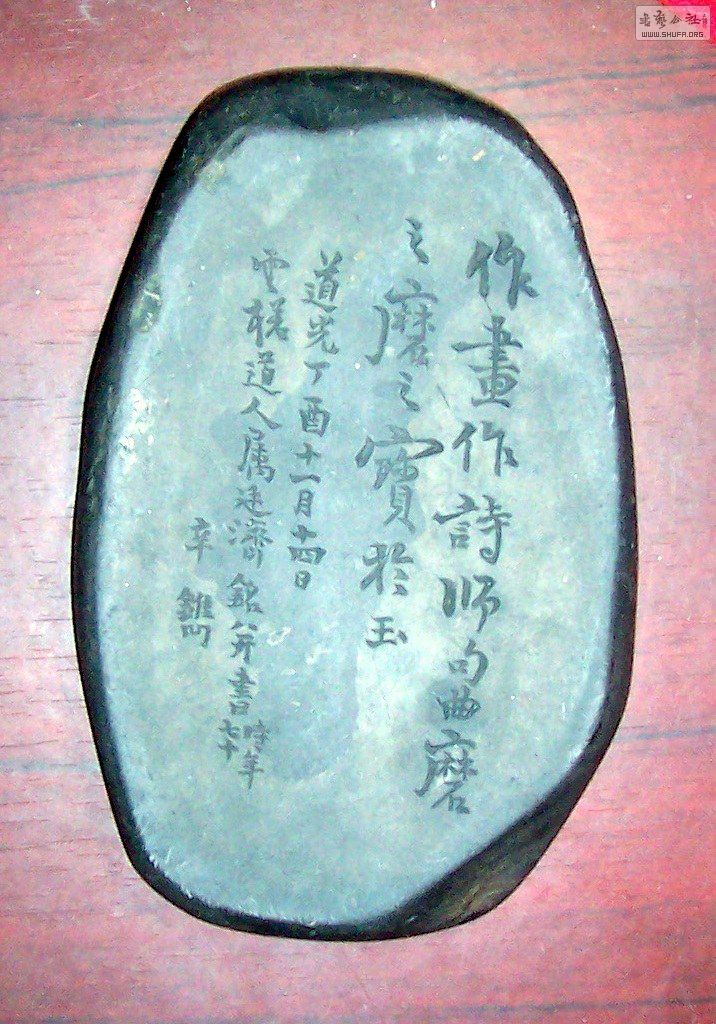 作畫作詩師句曲磨
之磨之寶於玉
道光丁酉十一月十四日
雲槎道人属廷濟銘并書時年
七十
辛
鐫
書藝公社
WWW.SHUFA.ORG